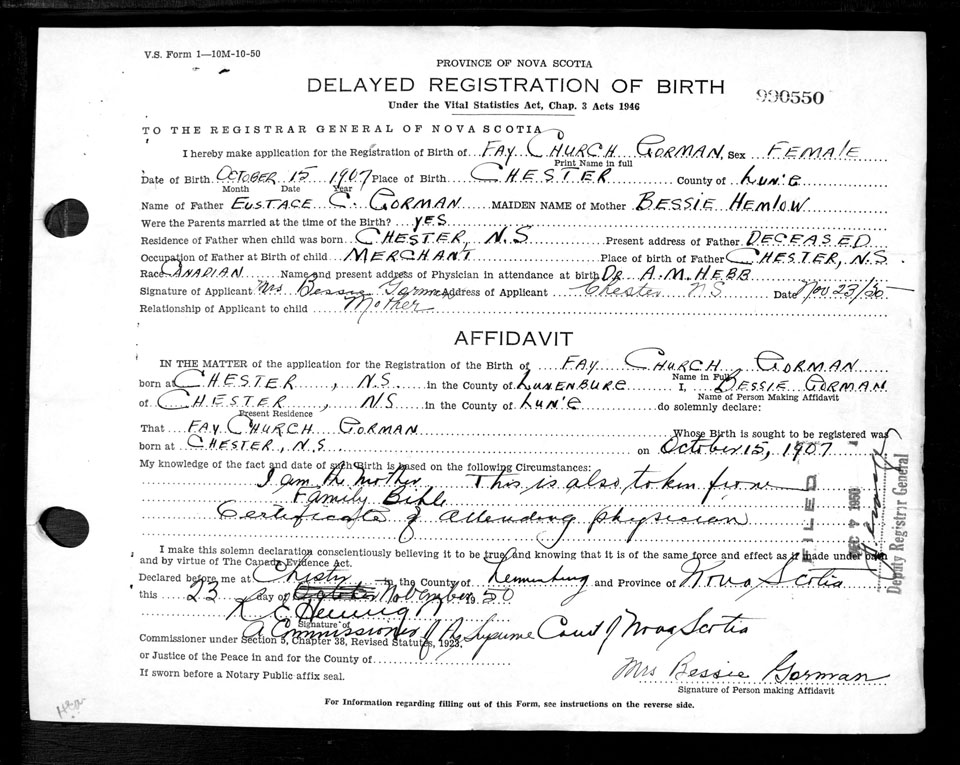 V.S. Form 1—10M-10-50
PROVINCE OF NOVA SCOTIA
DELAYED REGISTRATION OF BIRTH
990550
Under the Vital Statistics Act, Chap. 3 Acts 1946
TO THE REGISTRAR GENERAL OF NOVA SCOTIA
I hereby make application for the Registration of Birth of FAY CHURCH GORMAN, Sex FEMALE
Print Name in full
Date of Birth OCTOBER 15 1907 Place of Birth CHESTER County of LUN'G
Month Date Year
Name of Father EUSTACE C. GORMAN MAIDEN NAME of Mother BESSIE HEMLOW
Were the Parents married at the time of the Birth? YES
Residence of Father when child was born CHESTER, N.S Present address of Father DECEASED
Occupation of Father at Birth of child MERCHANT Place of birth of Father CHESTER, N.S.
Race CANADIAN Name and present address of Physician in attendance at birth DR. A.M. HEBB
Signature of Applicant Mrs Bessie Gorman Address of Applicant Chester NS Date Nov 23/50
Relationship of Applicant to child Mother
AFFIDAVIT
IN THE MATTER of the application for the Registration of the Birth of FAY CHURCH GORMAN
Name in Full
born at CHESTER, N.S. in the County of LUNENBURG I, BESSIE GORMAN
Name of Person Making Affidavit
of CHESTER, N.S in the County of LUN'G do solemnly declare:
Present Residence
That FAY CHURCH GORMAN Whose Birth is sought to be registered was
born at CHESTER, N.S. on October 15, 1907
My knowledge of the fact and date of such Birth is based on the following Circumstances:
I am the mother. This is also taken from
Family Bible
Certificate of attending physician
FILED
DEC 7 1950
Deputy Registrar General
I make this solemn declaration conscientiously believing it to be true, and knowing that it is of the same force and effect as if made under oath
and by virtue of The Canada Evidence Act.
Declared before me at Chester, in the County of Lunenburg and Province of Nova Scotia
this 23 day of November 1950
Signature of
A Commissioner of the Supreme Court of Nova Scotia
Commissioner under Section 5, Chapter 38, Revised Statutes, 1923,
or Justice of the Peace in and for the County of
If sworn before a Notary Public affix seal.
Mrs Bessie Gorman
Signature of Person making Affidavit
For Information regarding filling out of this Form, see instructions on the reverse side.